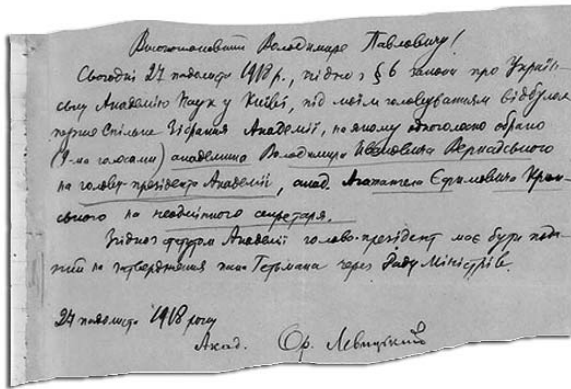 Високоповажний Володимире Павловичу!
Сьогодні 27 падолиста 1918 р., згідно з § 6 закона про Україн-
ську Академію Наук у Київі, під моїм головуванням відбулося
перше Спільне Зібрання Академії, на якому одноголосно обрано
(9-ма голосами) академика Володимира Івановича Вернадського
на голову-президента Академії, акад. Агатангела Єфимовича Крим-
ського на неодмінного секретаря.
Згідно з статутом Академії голова-президент має бути пода-
ний на затвердження пана Гетьмана через Раду Міністрів.
27 падолиста 1918 року
Акад. Ор. Левицький